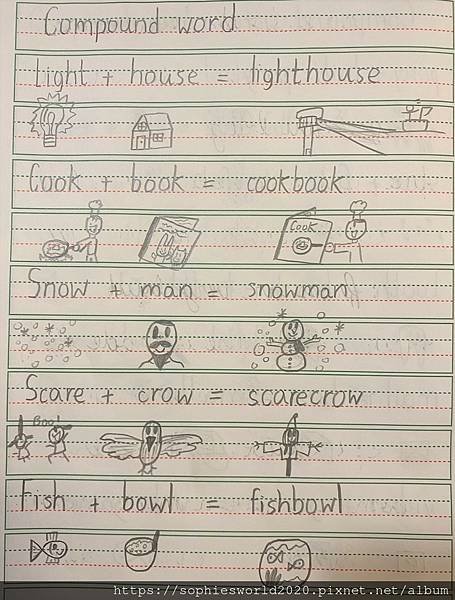 Compound word
Light + house = lighthouse
Cook + book = cookbook
Cook
Snow + man = snowman
Scare + crow = scarecrow
Boo!
Fish + bowl = fishbowl
https://sophiesworld2020.pixnet.net/album